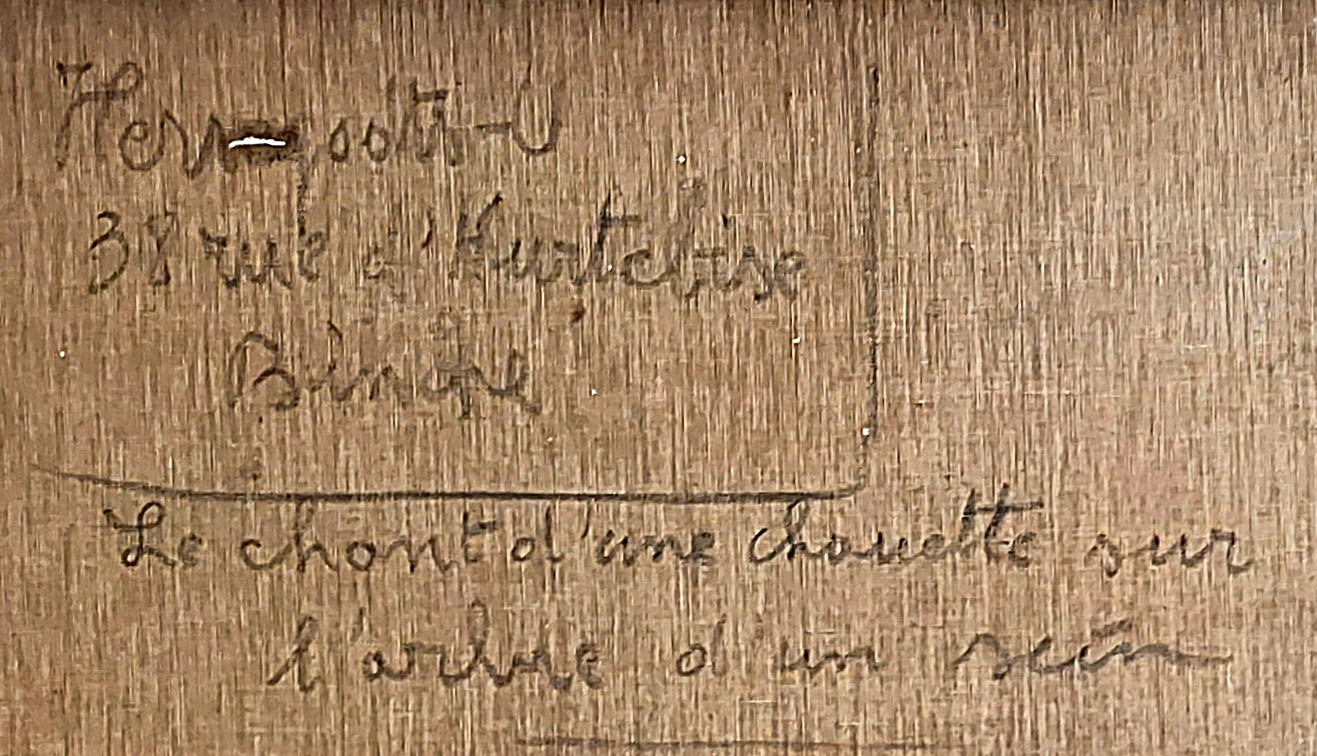 38 rue d'Hurtebise
Binche
Le chant d'une chouette sur
l'arbre d'un sein